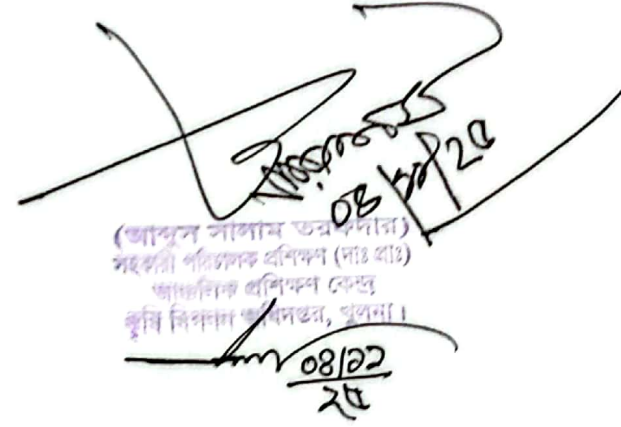 ০৪/১১/২৫
(আব্দুস সালাম তরফদার)
সহকারী পরিচালক প্রশিক্ষণ (দাঃ প্রাঃ)
আঞ্চলিক প্রশিক্ষণ কেন্দ্র
কৃষি বিপণন অধিদপ্তর, খুলনা।
০৪/১১
২৫